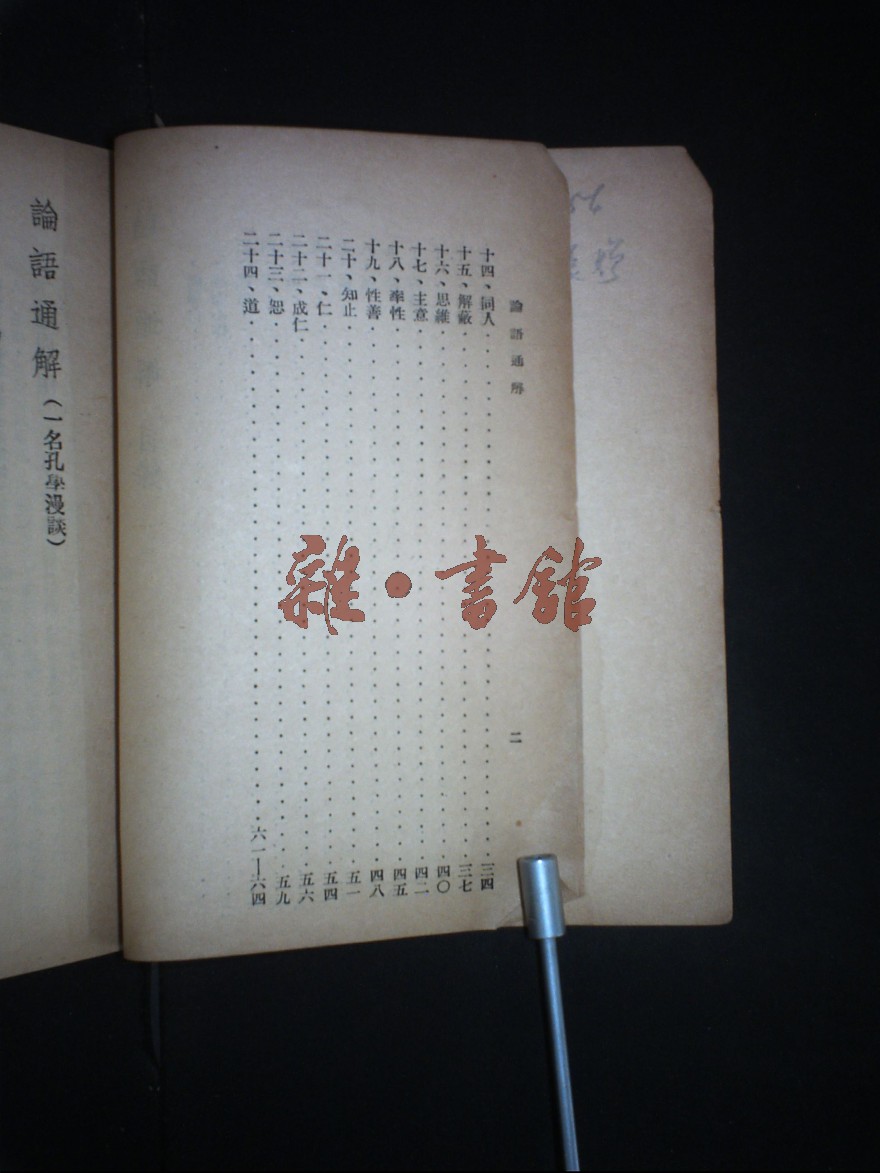 論語通解
二
十四、同人三四
十五、解蔽三七
十六、思維四〇
十七、主意四二
十八、率性四五
十九、性善四八
二十、知止五一
二十一、仁五四
二十二、成仁五六
二十三、恕五九
二十四、道六一—六四
論語通解(一名孔學漫談)
雜·書館